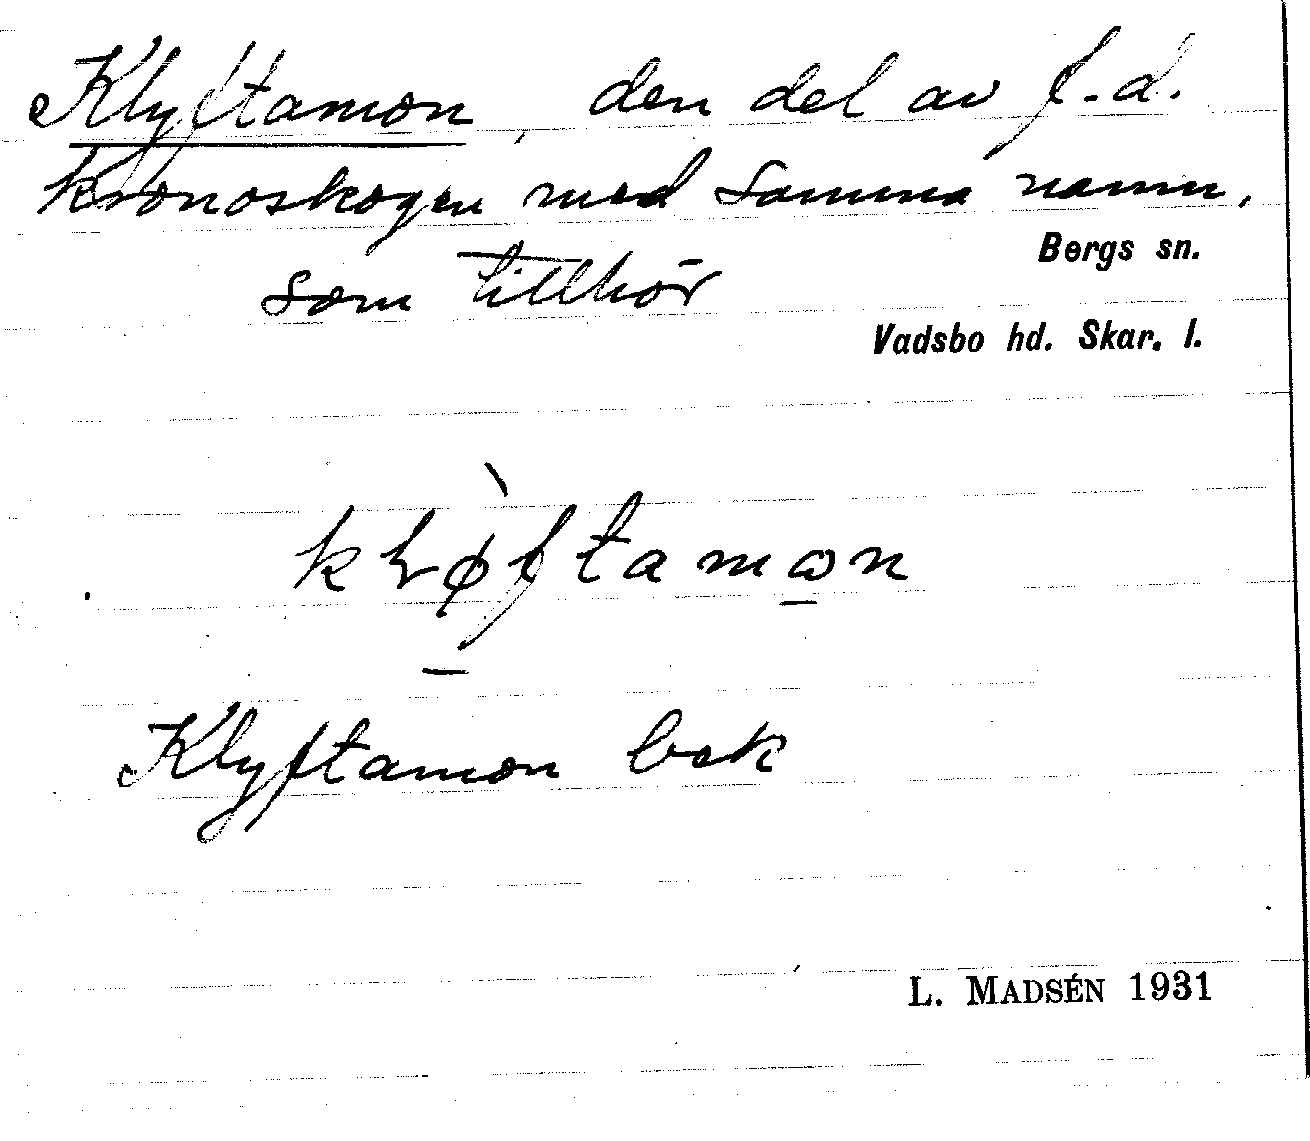 Klyftamon, den del av f.d.
kronoskogen med samma namn,
som tillhör
Bergs sn.
Vadsbo hd. Skar. l.
Klyftamon bek
L. MADSÉN 1931